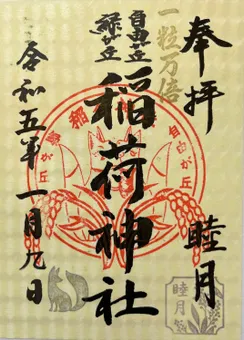 奉拝
一粒万倍
睦月
自由が丘
緑が丘
稲荷神社
令和五年一月九日
自由が丘
睦月